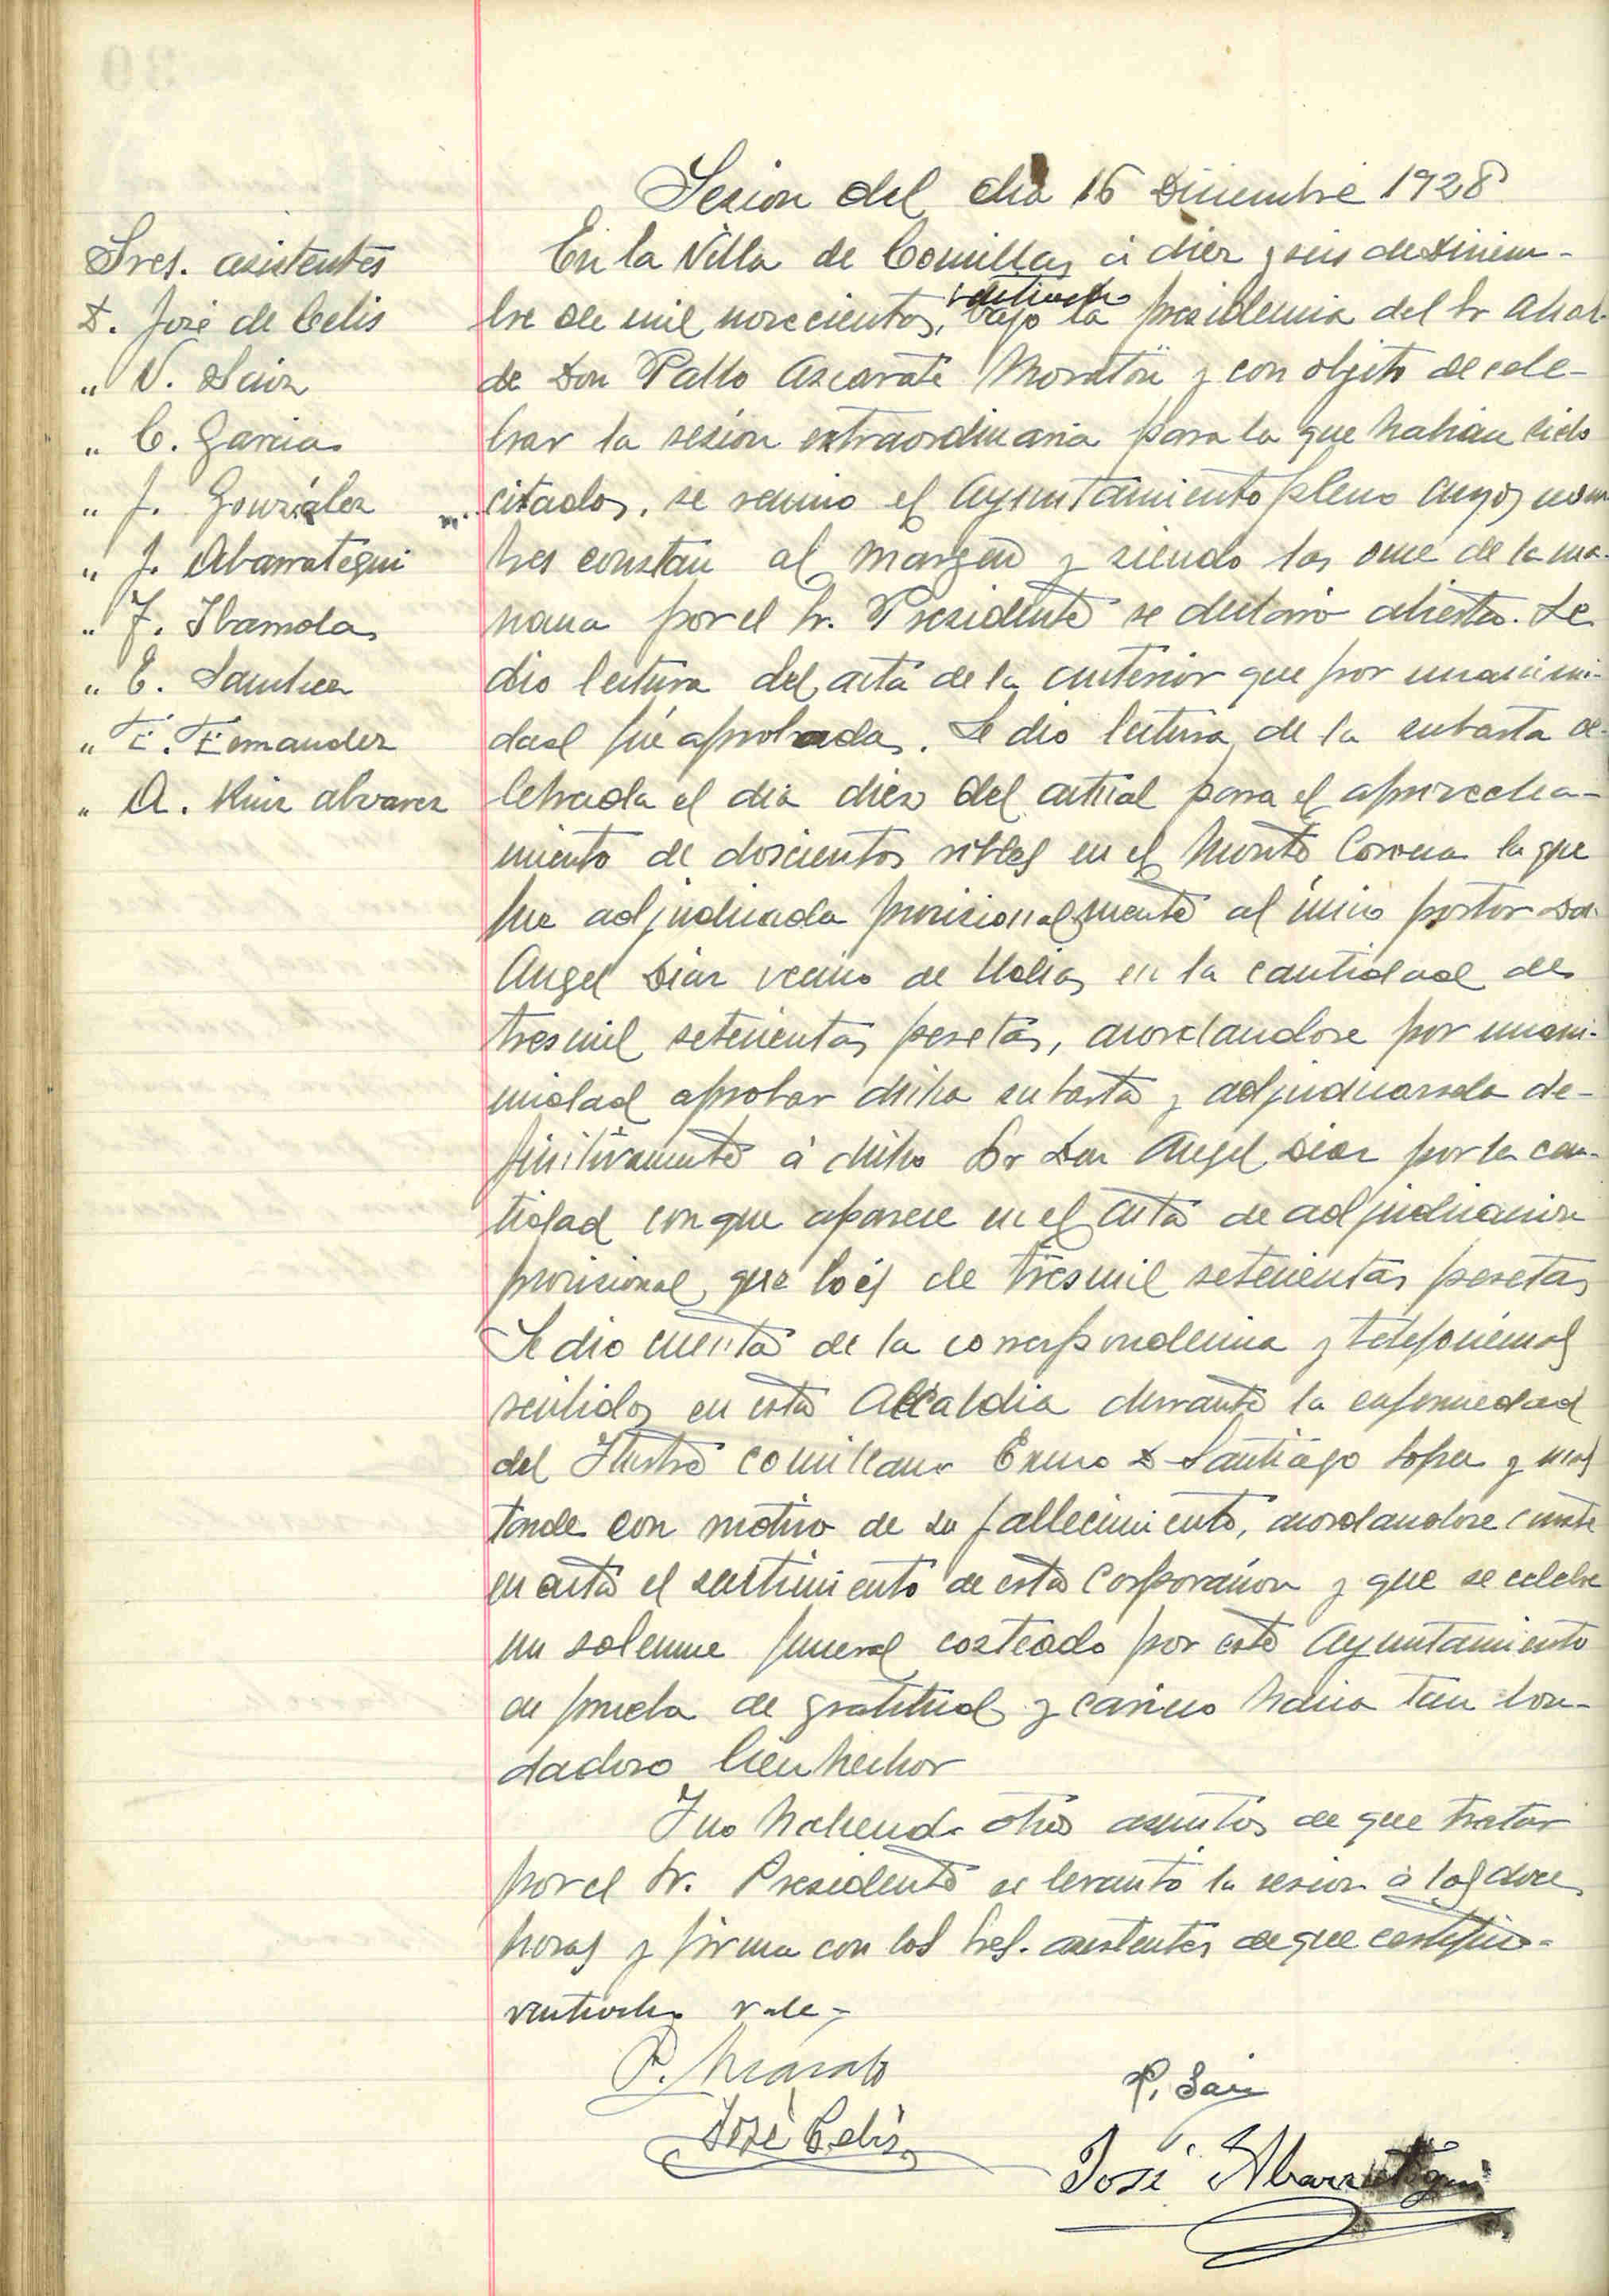 Sesion del dia 16 Diciembre 1928
Sres. asistentes
D. José de Celis
" V. Sainz
" C. Garcia
" J. González
" J. Abarrategui
" F. Ibarrola
" E. Sanchez
" E. Fernandez
" A. Ruiz alvarez
En la Villa de Comillas á diez y seis de Diciem-
bre de mil novecientos, veintiocho bajo la presidencia del Sr Alcal-
de Don Pablo Azcarate Moratón y con objeto de cele-
brar la sesión extraordinaria para la que habian sido
citados, se reunio el Ayuntamiento pleno cuyos nom
bres constan al margen y siendo las once de la ma-
ñana por el Sr. Presidente se declaró abierta. Se
dio lectura del acta de la anterior que por unanimi-
dad fué aprobada. Se dio lectura de la subasta ce-
lebrada el dia diez del actual para el aprovecha-
miento de doscientos robles en el Monte Corona la que
fue adjudicada provisionalmente al único postor Don
Angel Diaz vecino de Udias en la cantidad de
tres mil setecientas pesetas, acordandose por unani-
midad aprobar dicha subasta y adjudicarsela de-
finitivamente á dicho Sr Don Angel Diaz por la can-
tidad con que aparece en el acta de adjudicacion
provisional que lo és de tres mil setecientas pesetas
Se dio cuenta de la correspondencia y telefonemas
recibidos en esta Alcaldia durante la enfermedad
del Ilustre comillano Excmo D Santiago Lopez y mas
tarde con motivo de su fallecimiento, acordandose conste
en acta el sentimiento de esta Corporación y que se celebre
un solemne funeral costeado por este Ayuntamiento
en prueba de gratitud y cariño hacia tan bon-
dadoso bienhechor
Y no habiendo otros asuntos de que tratar
por el Sr. Presidente se levantó la sesion á las doce
horas y firma con los Sres. asistentes de que certifico-
veintiocho vale-
P. Azcarate
P. Sainz
José Celis
José Abarrategui